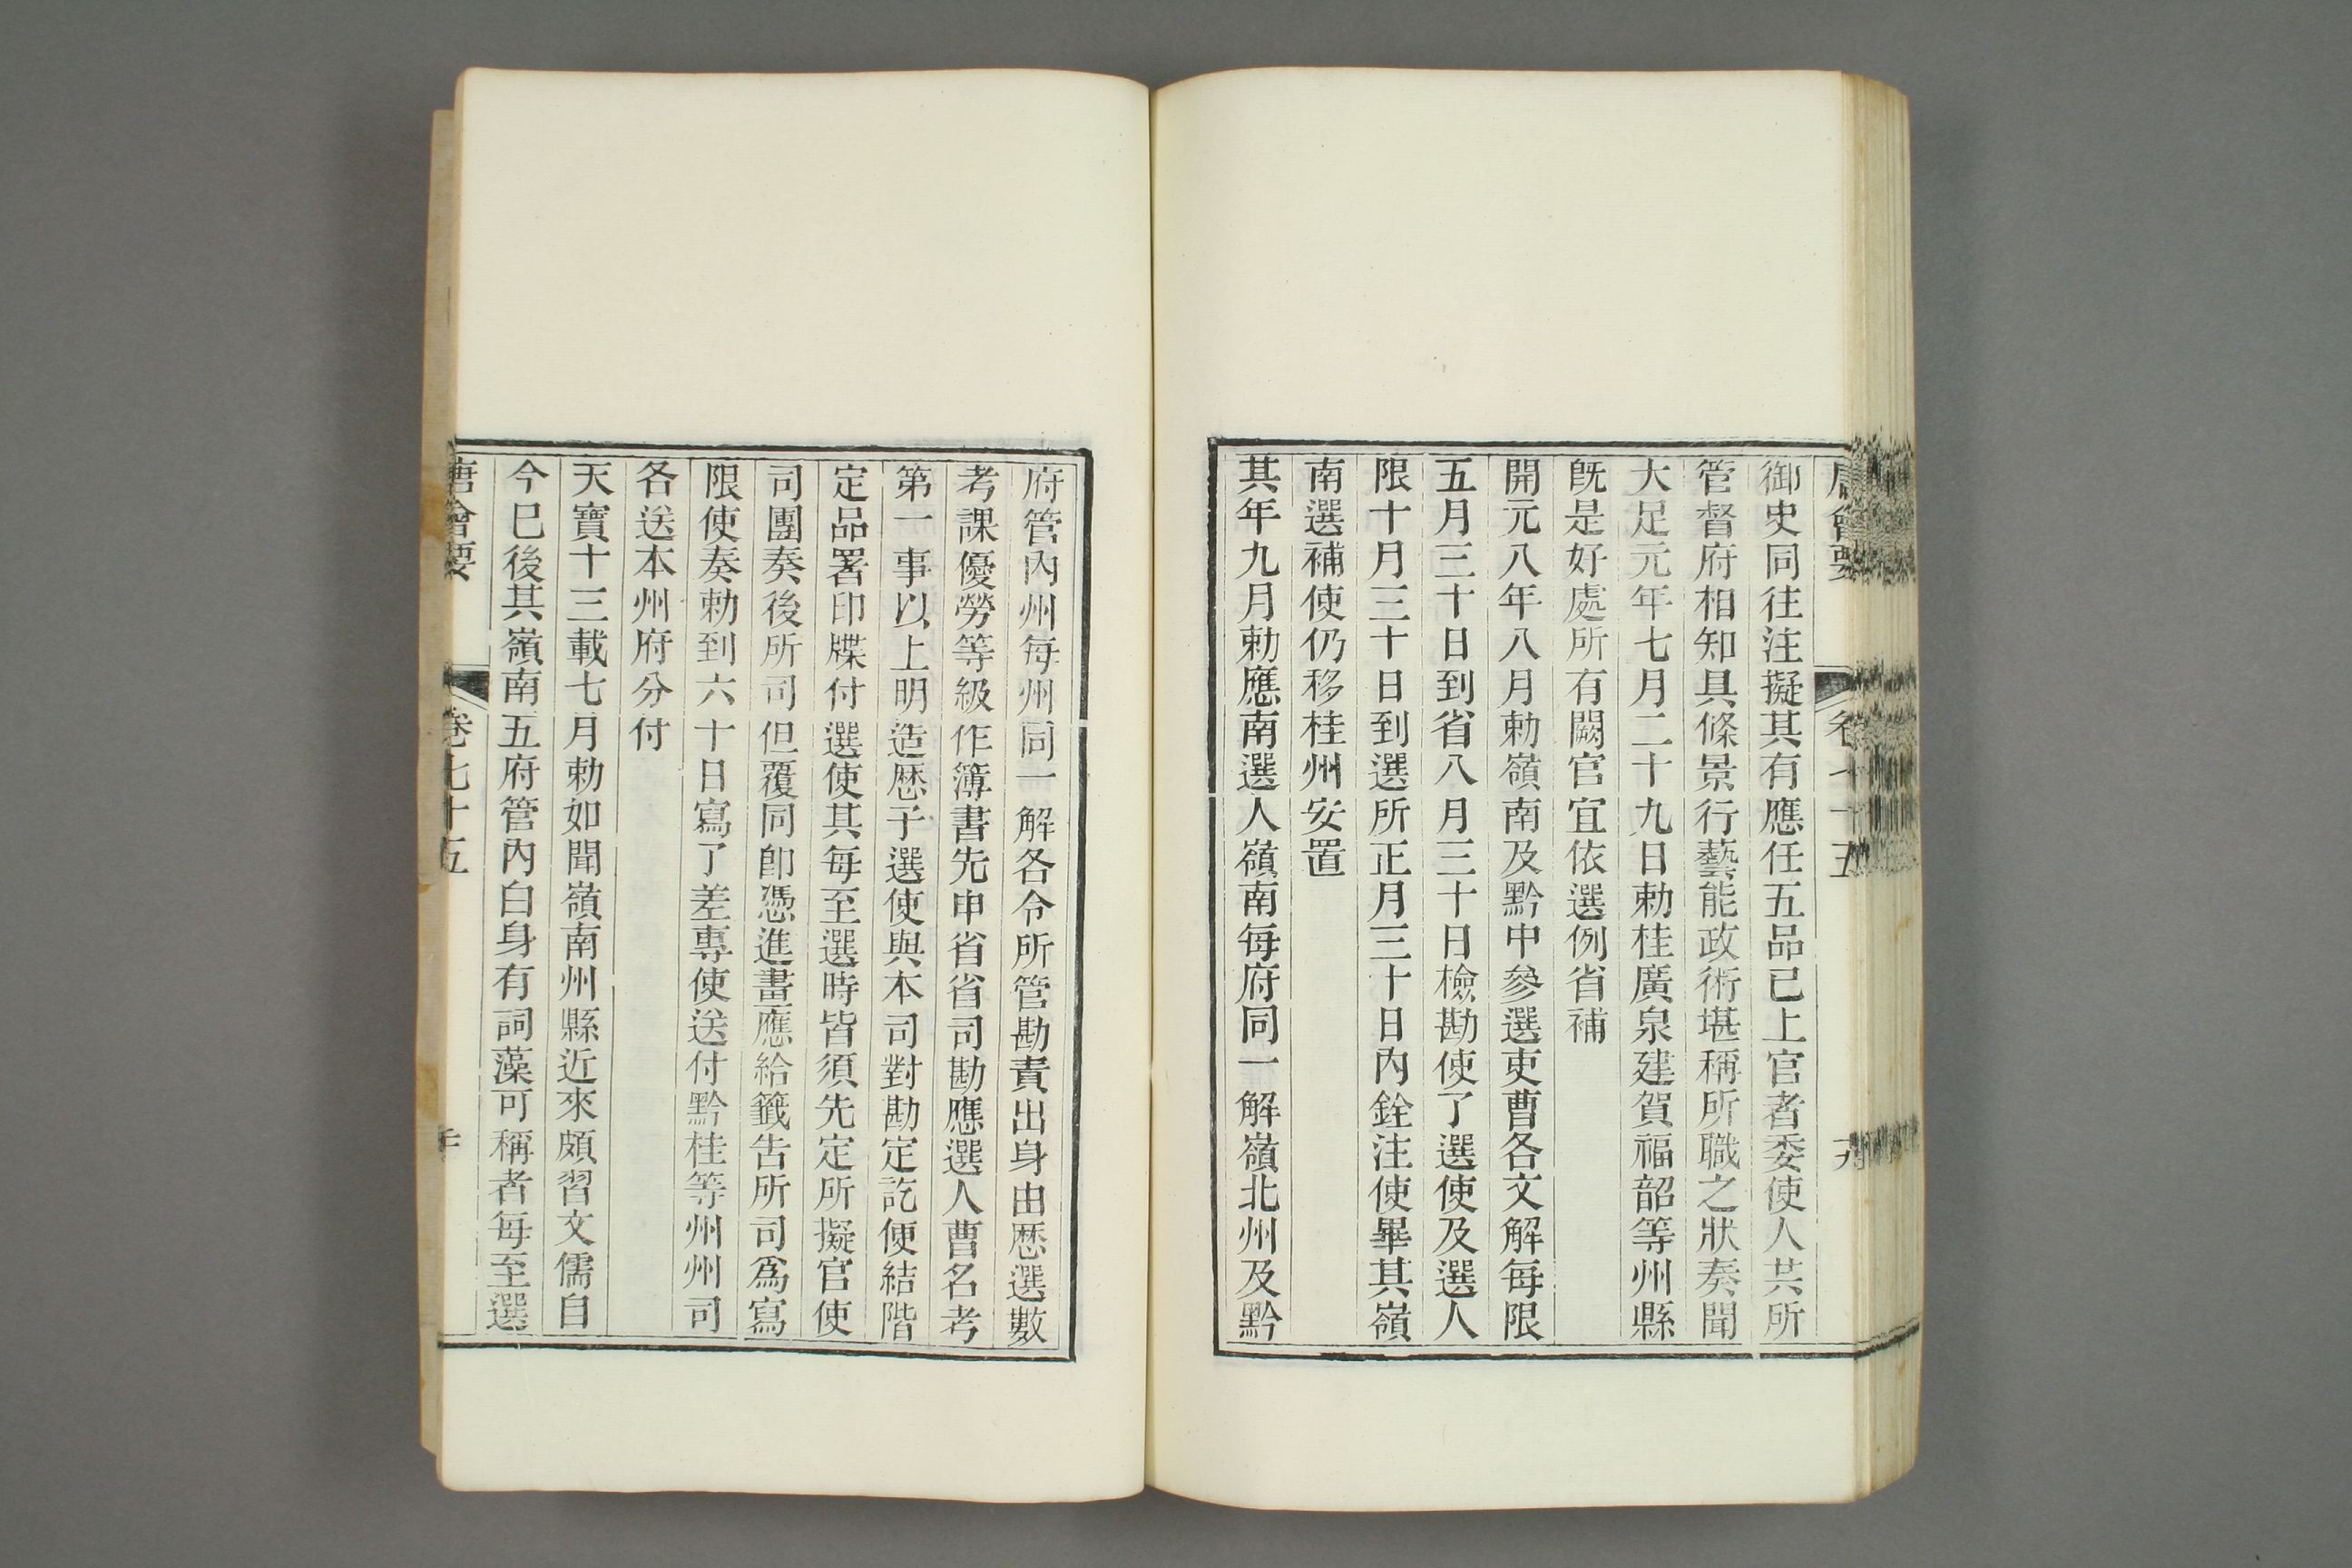 唐會要 卷七十五 十九
御史同往注擬其有應任五品已上官者委使人共所
管督府相知具條景行藝能政術堪稱所職之狀奏聞
大足元年七月二十九日勅桂廣泉建賀福韶等州縣
旣是好處所有闕官宜依選例省補
開元八年八月勅嶺南及黔中參選吏曹各文解每限
五月三十日到省八月三十日檢勘使了選使及選人
限十月三十日到選所正月三十日內銓注使畢其嶺
南選補使仍移桂州安置
其年九月勅應南選人嶺南每府同一解嶺北州及黔
府管內州每州同一解各令所管勘責出身由歷選數
考課優勞等級作簿書先申省省司勘應選人曹名考
第一事以上明造歷子選使與本司對勘定訖便結階
定品署印牒付選使其每至選時皆須先定所擬官使
司團奏後所司但覆同卽憑進畫應給籤告所司爲寫
限使奏勅到六十日寫了差專使送付黔桂等州州司
各送本州府分付
天寶十三載七月勅如聞嶺南州縣近來頗習文儒自
今已後其嶺南五府管內白身有詞藻可稱者每至選
唐會要 卷七十五